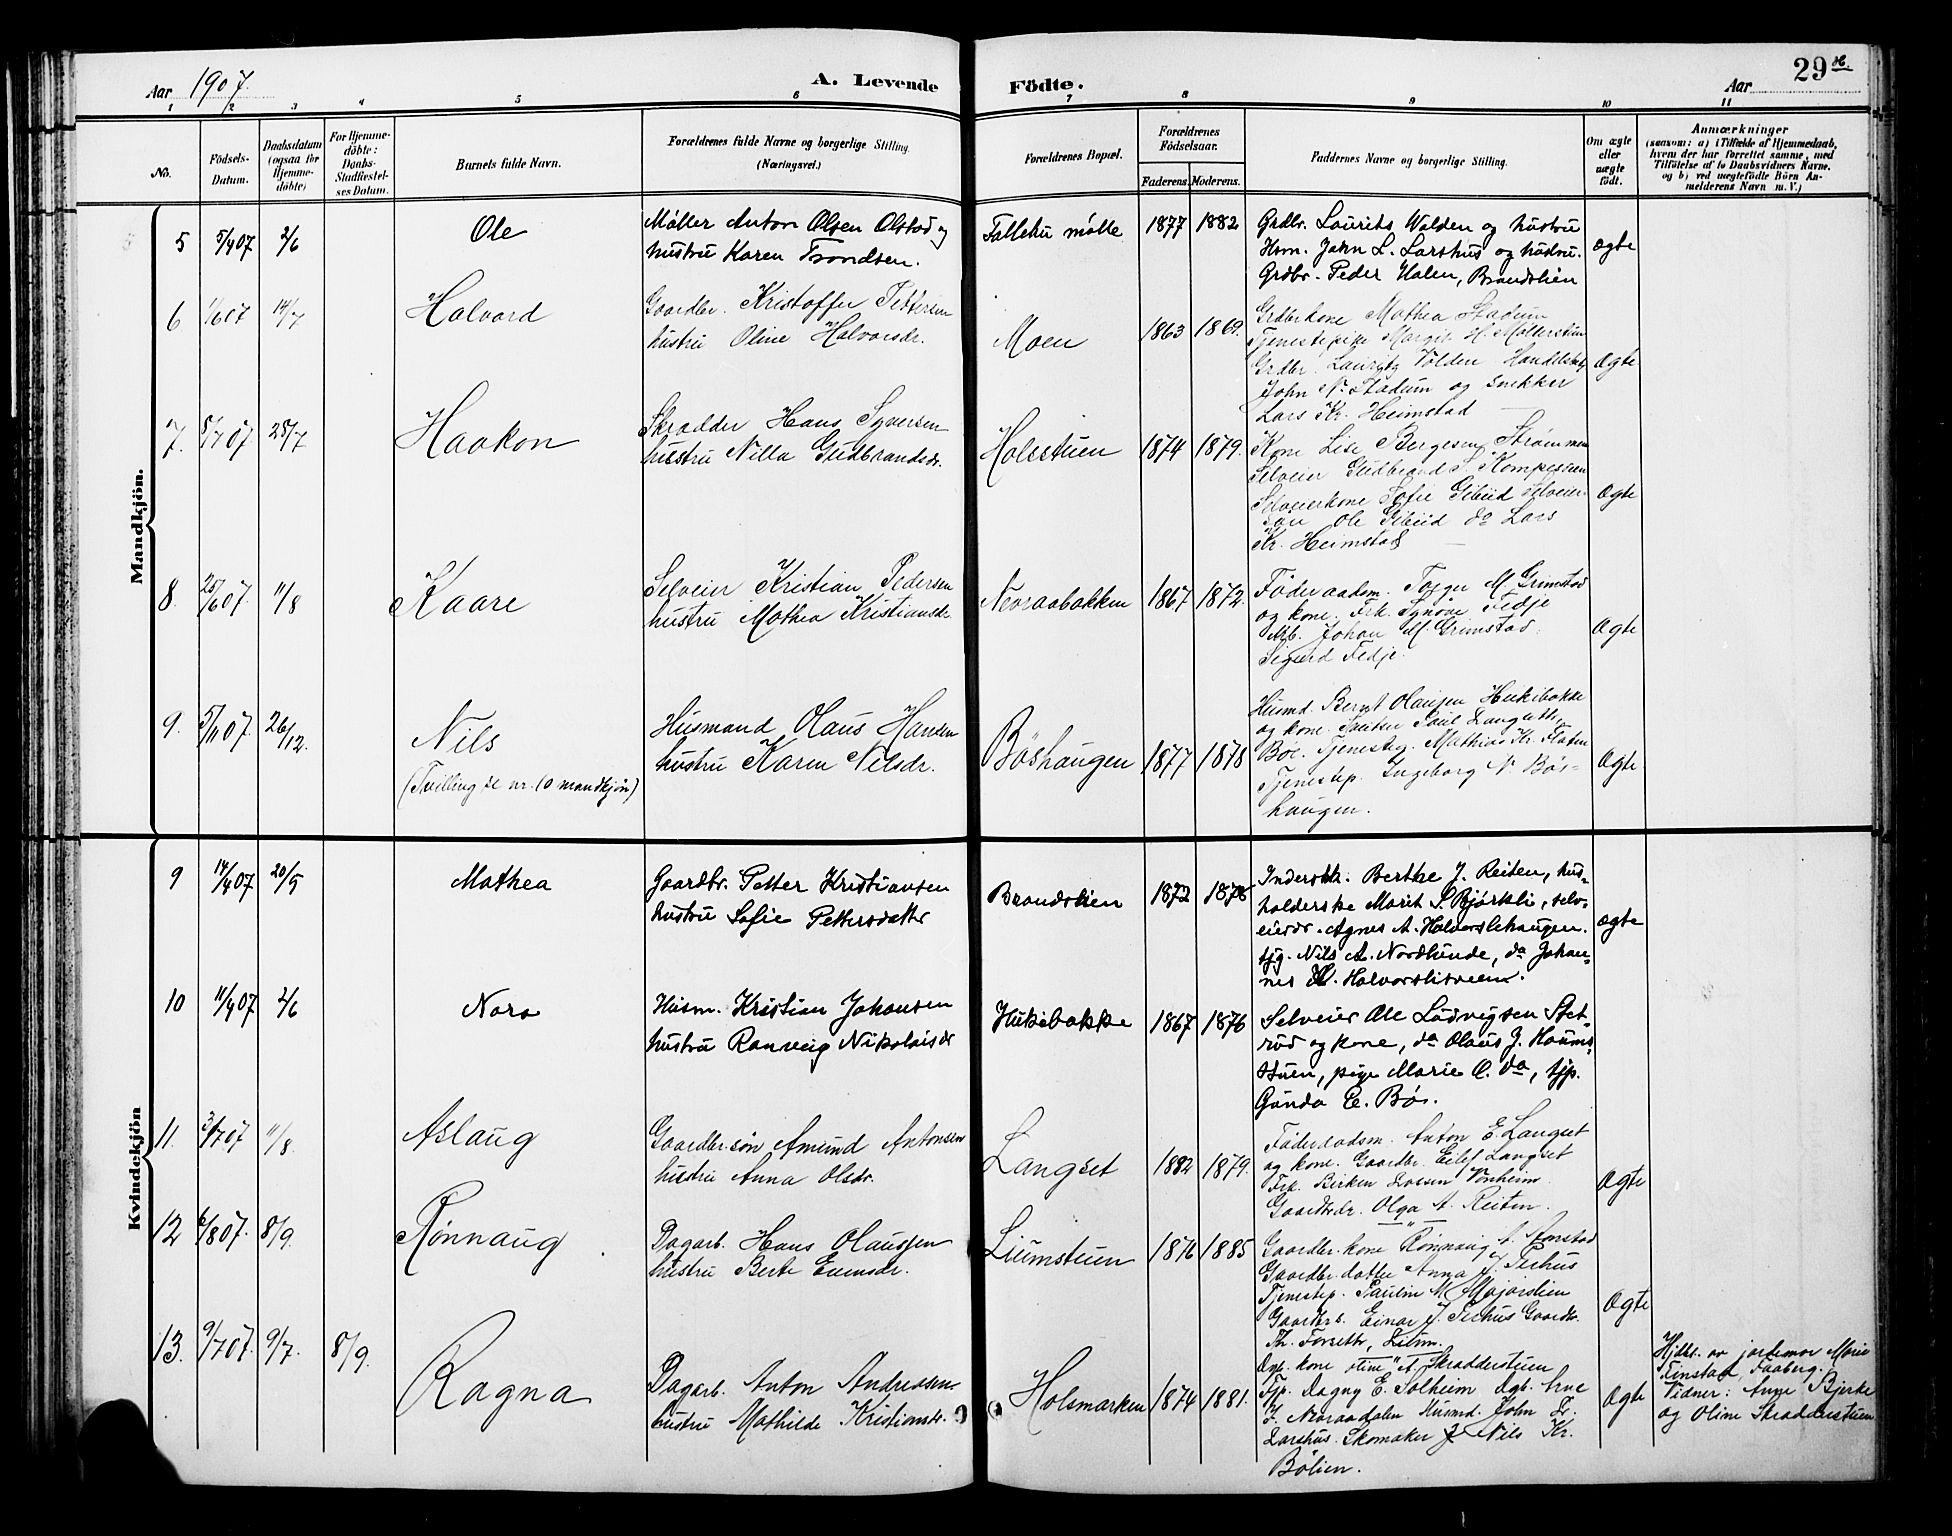 Aar 1907. A. Levende Födte. Aar 29
1 2 3 4 5 6 7 8 9 10 11
No. Födsels-Datum. Daabsdatum (ogsaa for Hjemme-döbte) For Hjemme-döbte: Daabs-Stadfæstel-ses Datum. Barnets fulde Navn. Forældrenes fulde Navne og borgerlige Stilling (Næringsvei.) Forældrenes Bopæl. Forældrenes Födselsaar. Faderens. Moderens. Faddernes Navne og borgerlige Stilling. Om ægte eller uægte födt. Anmærkninger (saasom: a) i Tilfælde af Hjemmedaab, hvem der har forrettet samme, med Tilföielse af to Daabsvidners Navne, og b) ved uægtefödte Börn Anmelderens Navn m. V.)
Mandkjön.
5 5/4 07 2/6 Ole
Møller Anton Olsen Olstad og
hustru Karen Trondsen.
mølle 1877 1882
Grdbr. Laurits Volden og hustru
Hsm. John L. Larshus og hustru.
Grdbr. Peder Holen, Brandslien
ægte
6 1/6 07 14/7 Halvard
Gaardbr. Kristoffer Pettersen
hustru Oline Halvorsdr.
Moen 1863 1869.
Grdbrkone Mathea Stadum
Tjenestepike Margit H. Møllerstuen
Grdbr. Laurits Volden Handelsbetj.
John N. Stadum og snekker
Lars Kr. Heimstad
Ægte
7. 5/7 07 25/7 Haakon
Skrædder Hans Syversen
hustru Nilla Gudbrandsdr.
Holsstuen 1874 1879.
Kone Lise Bergesen Strømmen
Selveier Gudbrand S. Kompestuen
Selveierkone Sofie Gibiid Selveier-
søn Ole Gibiid do Lars
Kr. Heimstad
Ægte
8. 25/6 07. 11/8 Kaare
Selveier Kristian Pedersen
hustru Mathea Kristiansdr.
Nevraabakken 1867 1872.
Føderaadsm. M. Grimstad
og kone. Frk. Synøve Fedje
Arb. Johan M. Grimstad.
Sigurd Fedje.
Ægte
9. 5/11 07. 26/12. Nils
(Tvilling se nr. 10 mandkjøn)
Husmand Olaus Hansen
hustru Karen Nilsdr.
Bøshaugen 1877 1878
Husmd. Bernt Olausen Hukibakke
og kone.
Bøe. Tjenestg. Mathias Kr. Floten
Tjenestep. Ingeborg N. Bøs-
haugen.
Ægte
Kvindekjön
9 14/4 07 20/5 Mathea
Gaardbr. Petter Kristiansen
hustru Sofie Pettersdatter
Brandslien 1872 1878
Indersk. Berthe J. Reiten, hus-
holderske Marit S. Bjørkli, selv-
eierdr. Agnes A. Halvorslihaugen.
tjg. Nils A. Nordlunde, do Johan-
nes H. Halvorslisveen.
ægte
10 11/4 07 2/6 Nora
Husm. Kristian Johansen
hustru Ranveig Nikolaisdr
Hukibakke 1867 1876
Selveier Ole Ludvigsen Stet-
rud og kone, do Olaus J. Haums-
stuen, pige Marie O. do, tjp.
Gunda E. Bøe.
11. 3/7 07 11/8. Aslaug
Gaardbr.søn Amund Antonsen
hustru Anna Olsdr.
Langset 1882 1879.
Føderaadsm. Anton E. Langset
og kone. Gaardbr. Eilef Langset
Frk. Birken Lossen Vonheim.
Gaardbrdr. Olga A. Reiten.
Ægte
12 6/8 07. 8/9. Rønnaug
Dagarb. Hans Olaussen
hustru Berte Evensdr.
Liumstuen 1876 1885
Gaardbr.kone Rønnaug A. Stonstad
Gaardbr.datter Anna J. Jevhus
Tjenestep. Pauline M. Majorslien
Gaardbrs. Einar J. Jevhus Gaardbr.
Kr. Forseth, Lium.
Ægte
13. 9/7 07. 9/7. 8/9. Ragna
Dagarb. Anton Andreassen
hustru Mathilde Kristiansdr.
Holsmarken 1874 1881.
Dgb. kone Oline A. Skrædderstuen
Tjp. Dagny E. Solheim Dgb. Arne
J. Nevraadalen Husmd. John L.
Larshus. Skomaker Nils Kr.
Bølien.
Ægte
Hjdbt. av jordemor Marie
Finstad, Faaberg.
Vidner: Ane Bjerke
og Oline Skrædderstuen